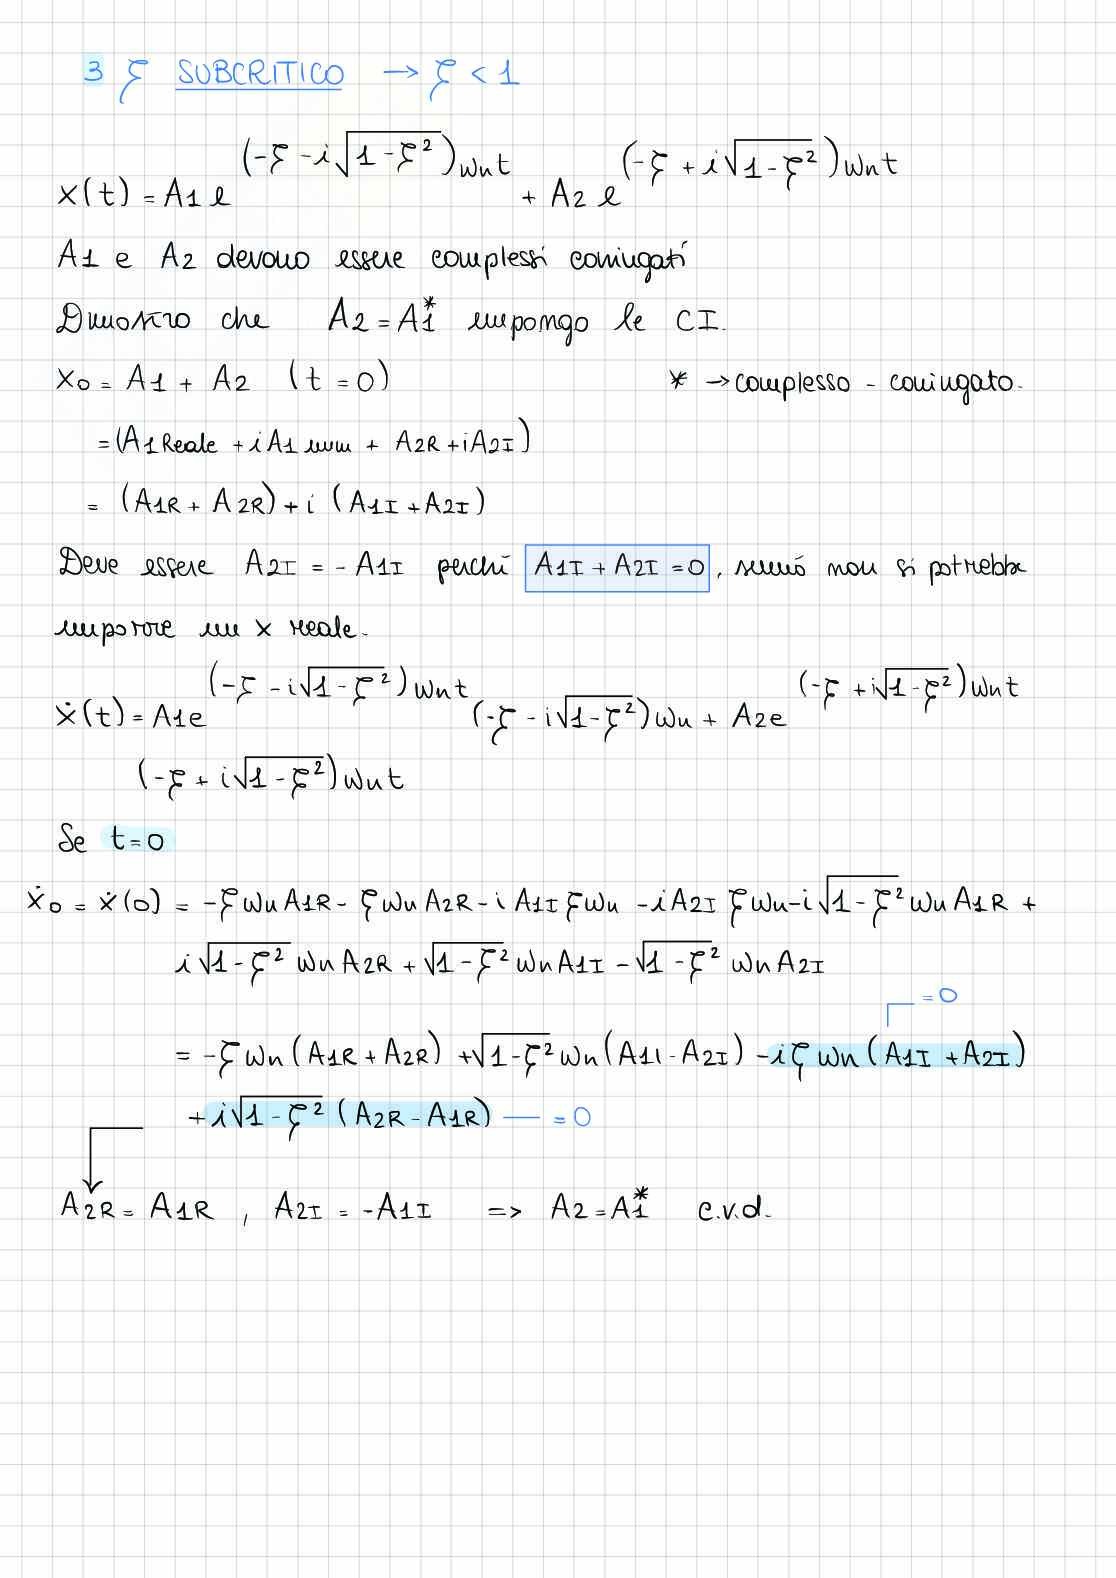 3 ξ SUBCRITICO → ξ < 1
x(t) = A1 e^(-ξ - i√(1-ξ²))wnt + A2 e^(-ξ + i√(1-ξ²))wnt
A1 e A2 devono essere complessi coniugati
Dimostro che A2 = A1* impongo le CI.
x0 = A1 + A2 (t = 0) * → complesso - coniugato.
= (A1Reale + iA1imm + A2R + iA2I)
= (A1R + A2R) + i (A1I + A2I)
Deve essere A2I = - A1I perché A1I + A2I = 0, sennò non si potrebbe
imporre un x reale.
ẋ(t) = A1e^(-ξ - i√(1-ξ²))wnt (-ξ - i√(1-ξ²))wn + A2e^(-ξ + i√(1-ξ²))wnt
(-ξ + i√(1-ξ²))wnt
Se t=0
ẋ0 = ẋ(0) = -ξwnA1R - ξwnA2R - iA1Iξwn - iA2Iξwn - i√(1-ξ²)wnA1R +
i√(1-ξ²) wnA2R + √(1-ξ²)wnA1I - √(1-ξ²) wnA2I
= 0
= -ξwn(A1R + A2R) + √(1-ξ²)wn(A1I - A2I) - iξwn(A1I + A2I)
+ i√(1-ξ²) (A2R - A1R) — = 0
A2R = A1R , A2I = -A1I => A2 = A1* c.v.d.